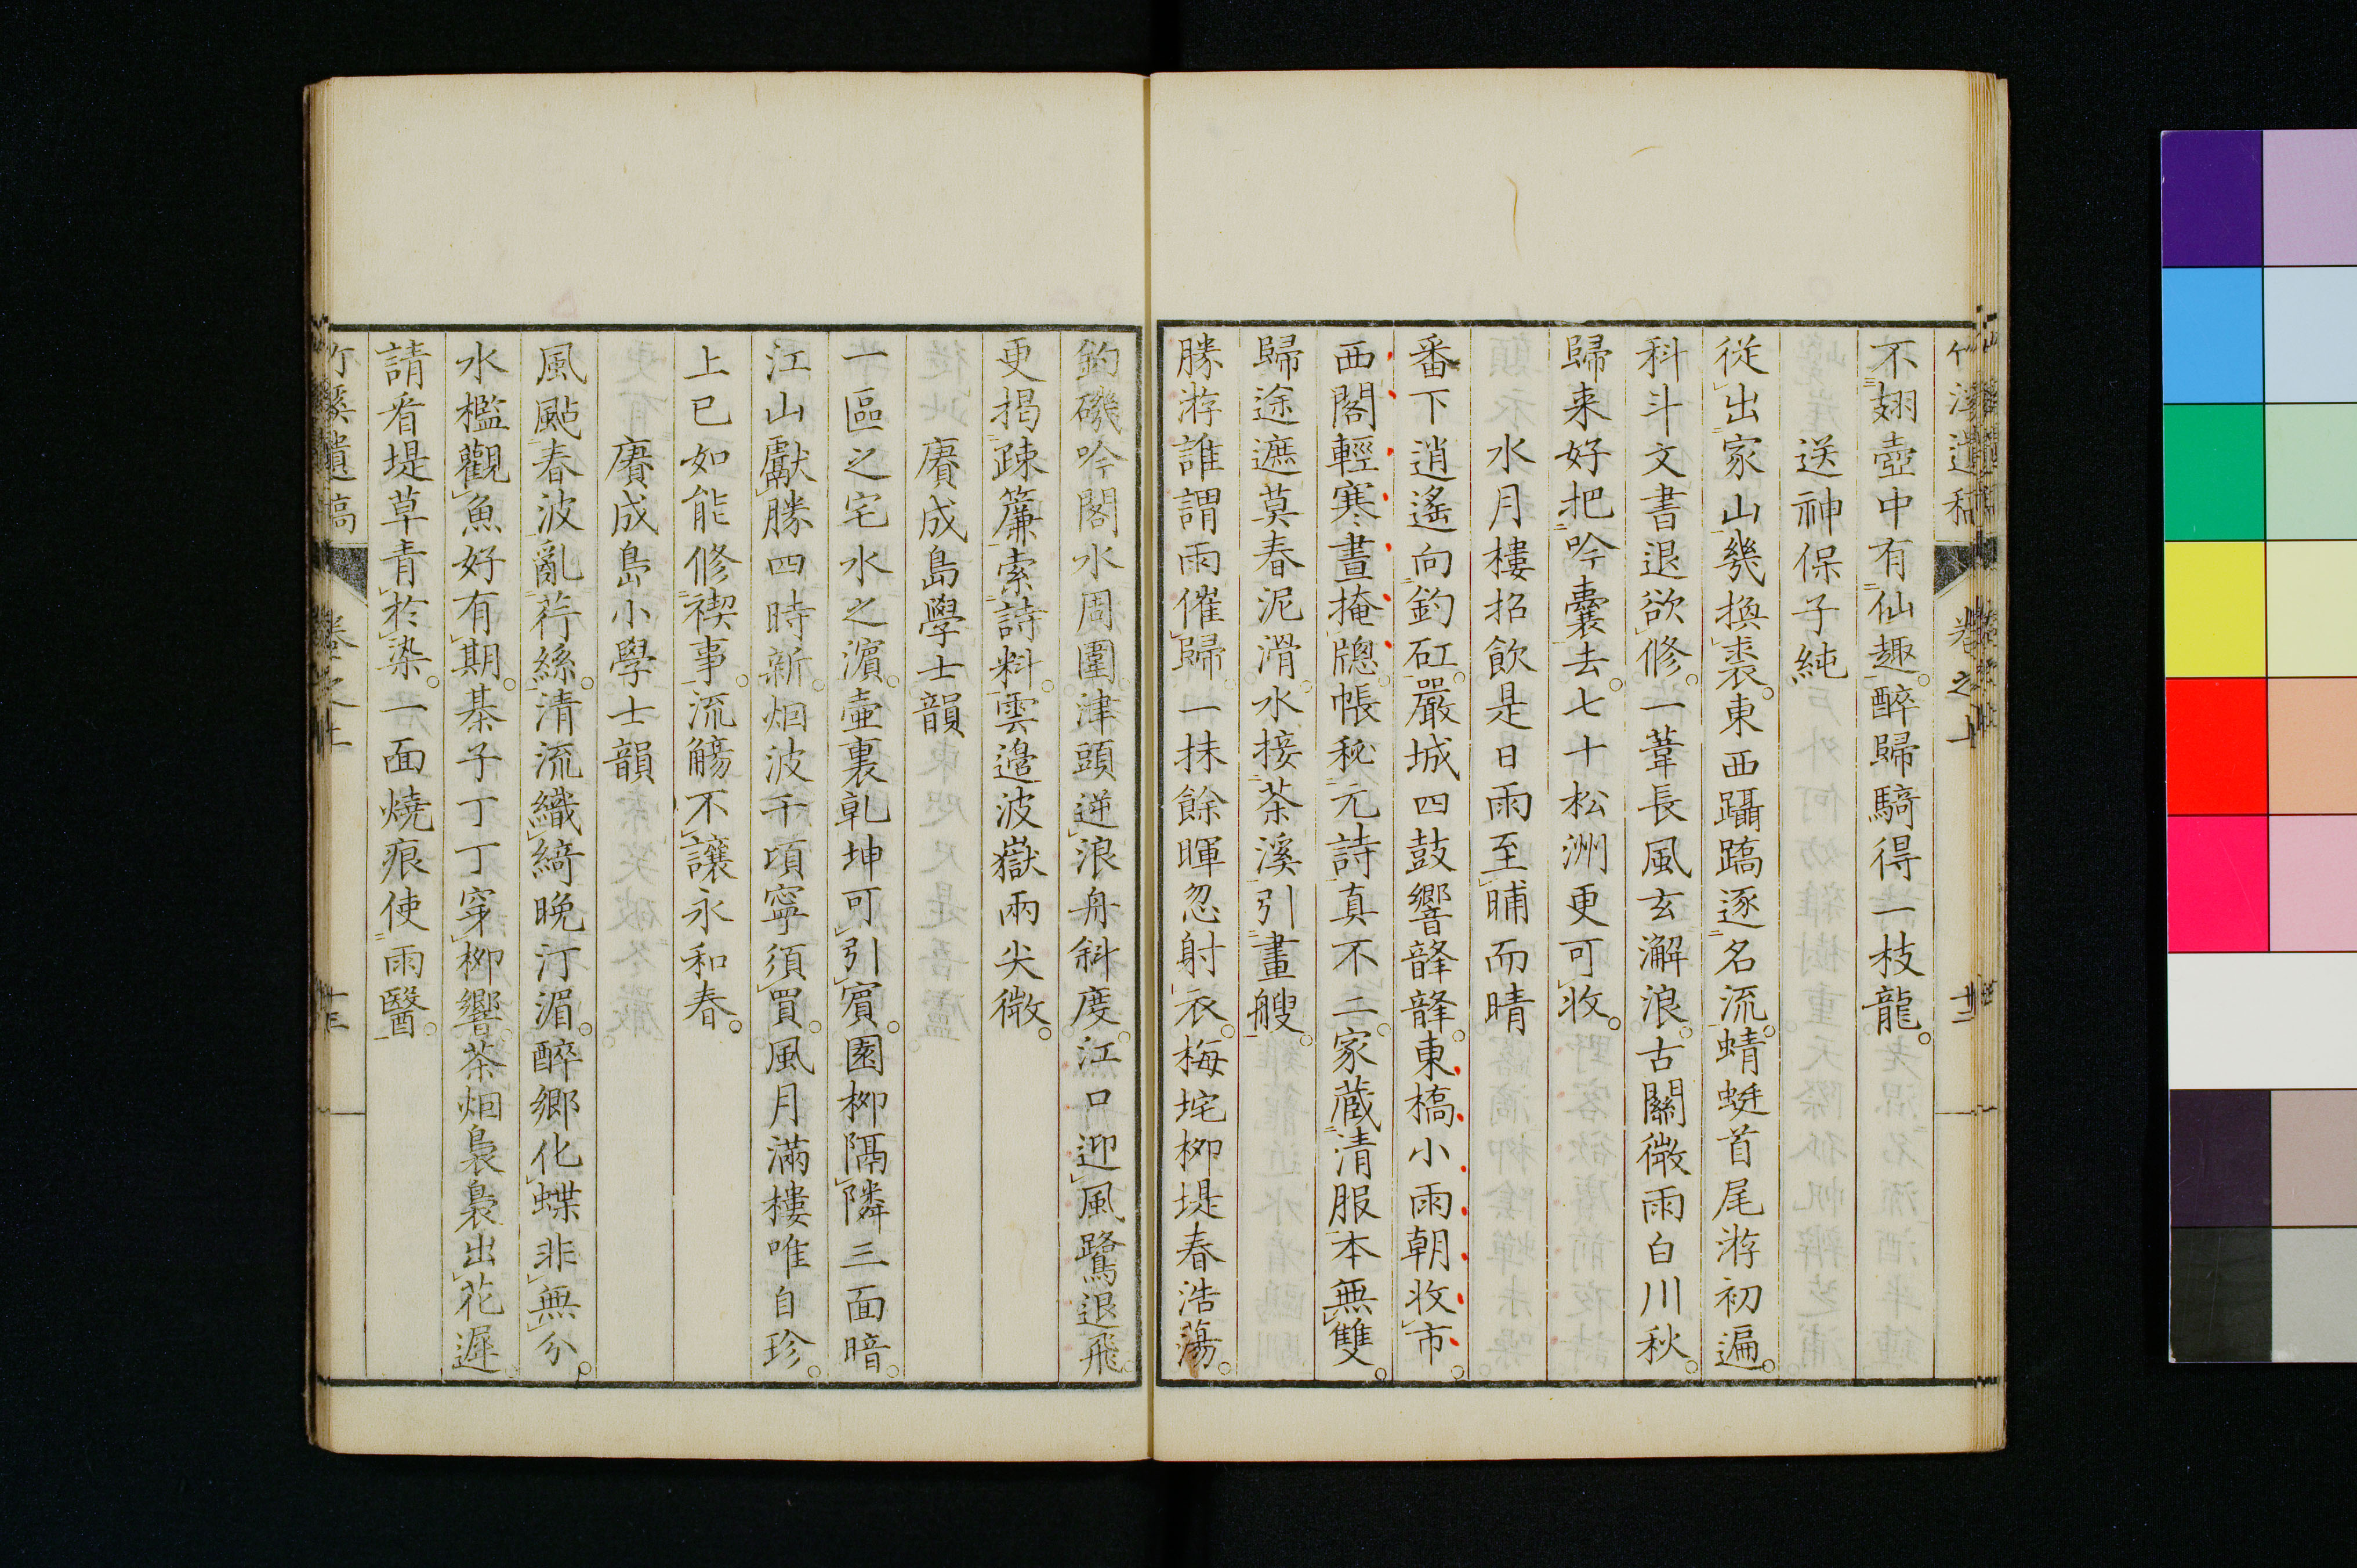 不翅壺中有仙趣。醉歸騎得一枝龍。
送神保子純
従出家山幾換裘。東西躡蹻逐名流。蜻蜓首尾游初遍。
科斗文書退欲修。一葦長風玄瀣浪。古關微雨白川秋。
歸来好把吟囊去。七十松洲更可收。
水月樓招飲是日雨至晡而晴
番下逍遙向釣矼。嚴城四鼓響韸韸。東橋小雨朝收市。
西閣輕寒晝掩牕。帳秘元詩真不二。家蔵清服本無雙。
歸途遮莫春泥滑。水接茶溪引畫艘。
勝游誰謂雨催歸。一抹餘暉忽射衣。梅垞柳堤春浩蕩。
釣磯吟閣水周圍。津頭逆浪舟斜度。江口迎風鷺退飛。
更揭疎簾索詩料。雲邉波嶽兩尖微。
賡成島學士韻
一區之宅水之濵。壷裏乹坤可引賓。園柳隔隣三面暗。
江山獻勝四時新。烟波千頃寧須買。風月滿樓唯自珍。
上巳如能修禊事。流觴不讓永和春。
賡成島小學士韻
風颭春波亂荇絲。清流織綺晩汀湄。醉郷化蝶非無分。
水檻觀魚好有期。棊子丁丁穿柳響。茶烟裊裊出花遲。
請看堤草青於染。一面燒痕使雨醫。
竹溪遺稿 卷之上